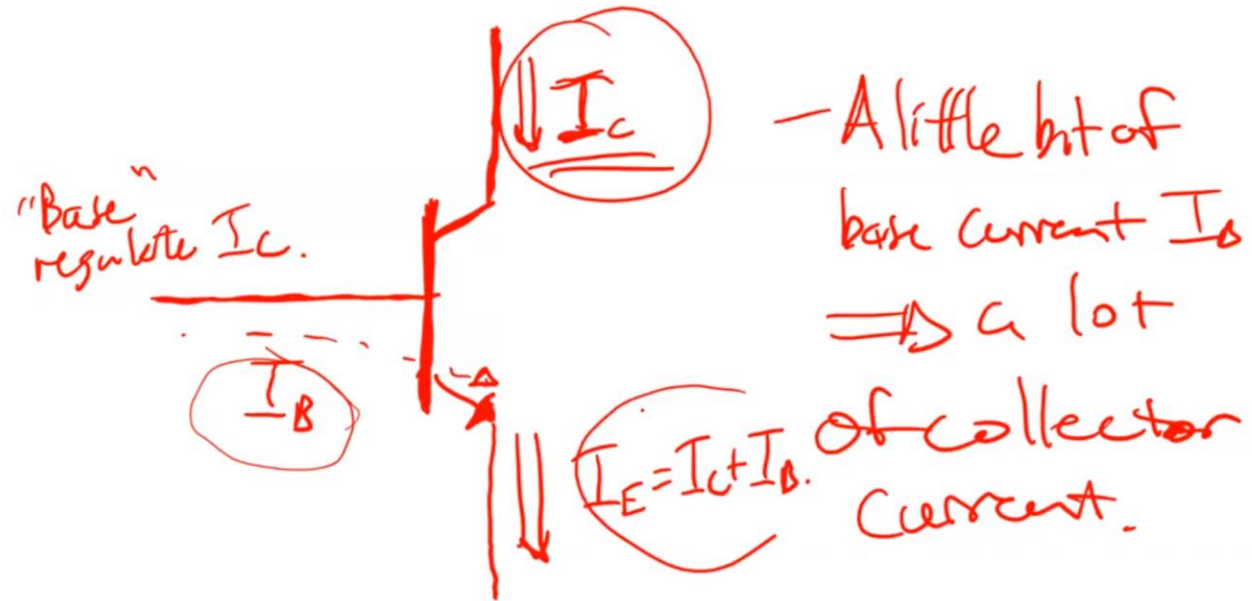 "Base"
regulate Ic.
IB
Ic
IE = Ic + IB.
- A little bit of
base current IB
⇒ a lot
of collector
current.